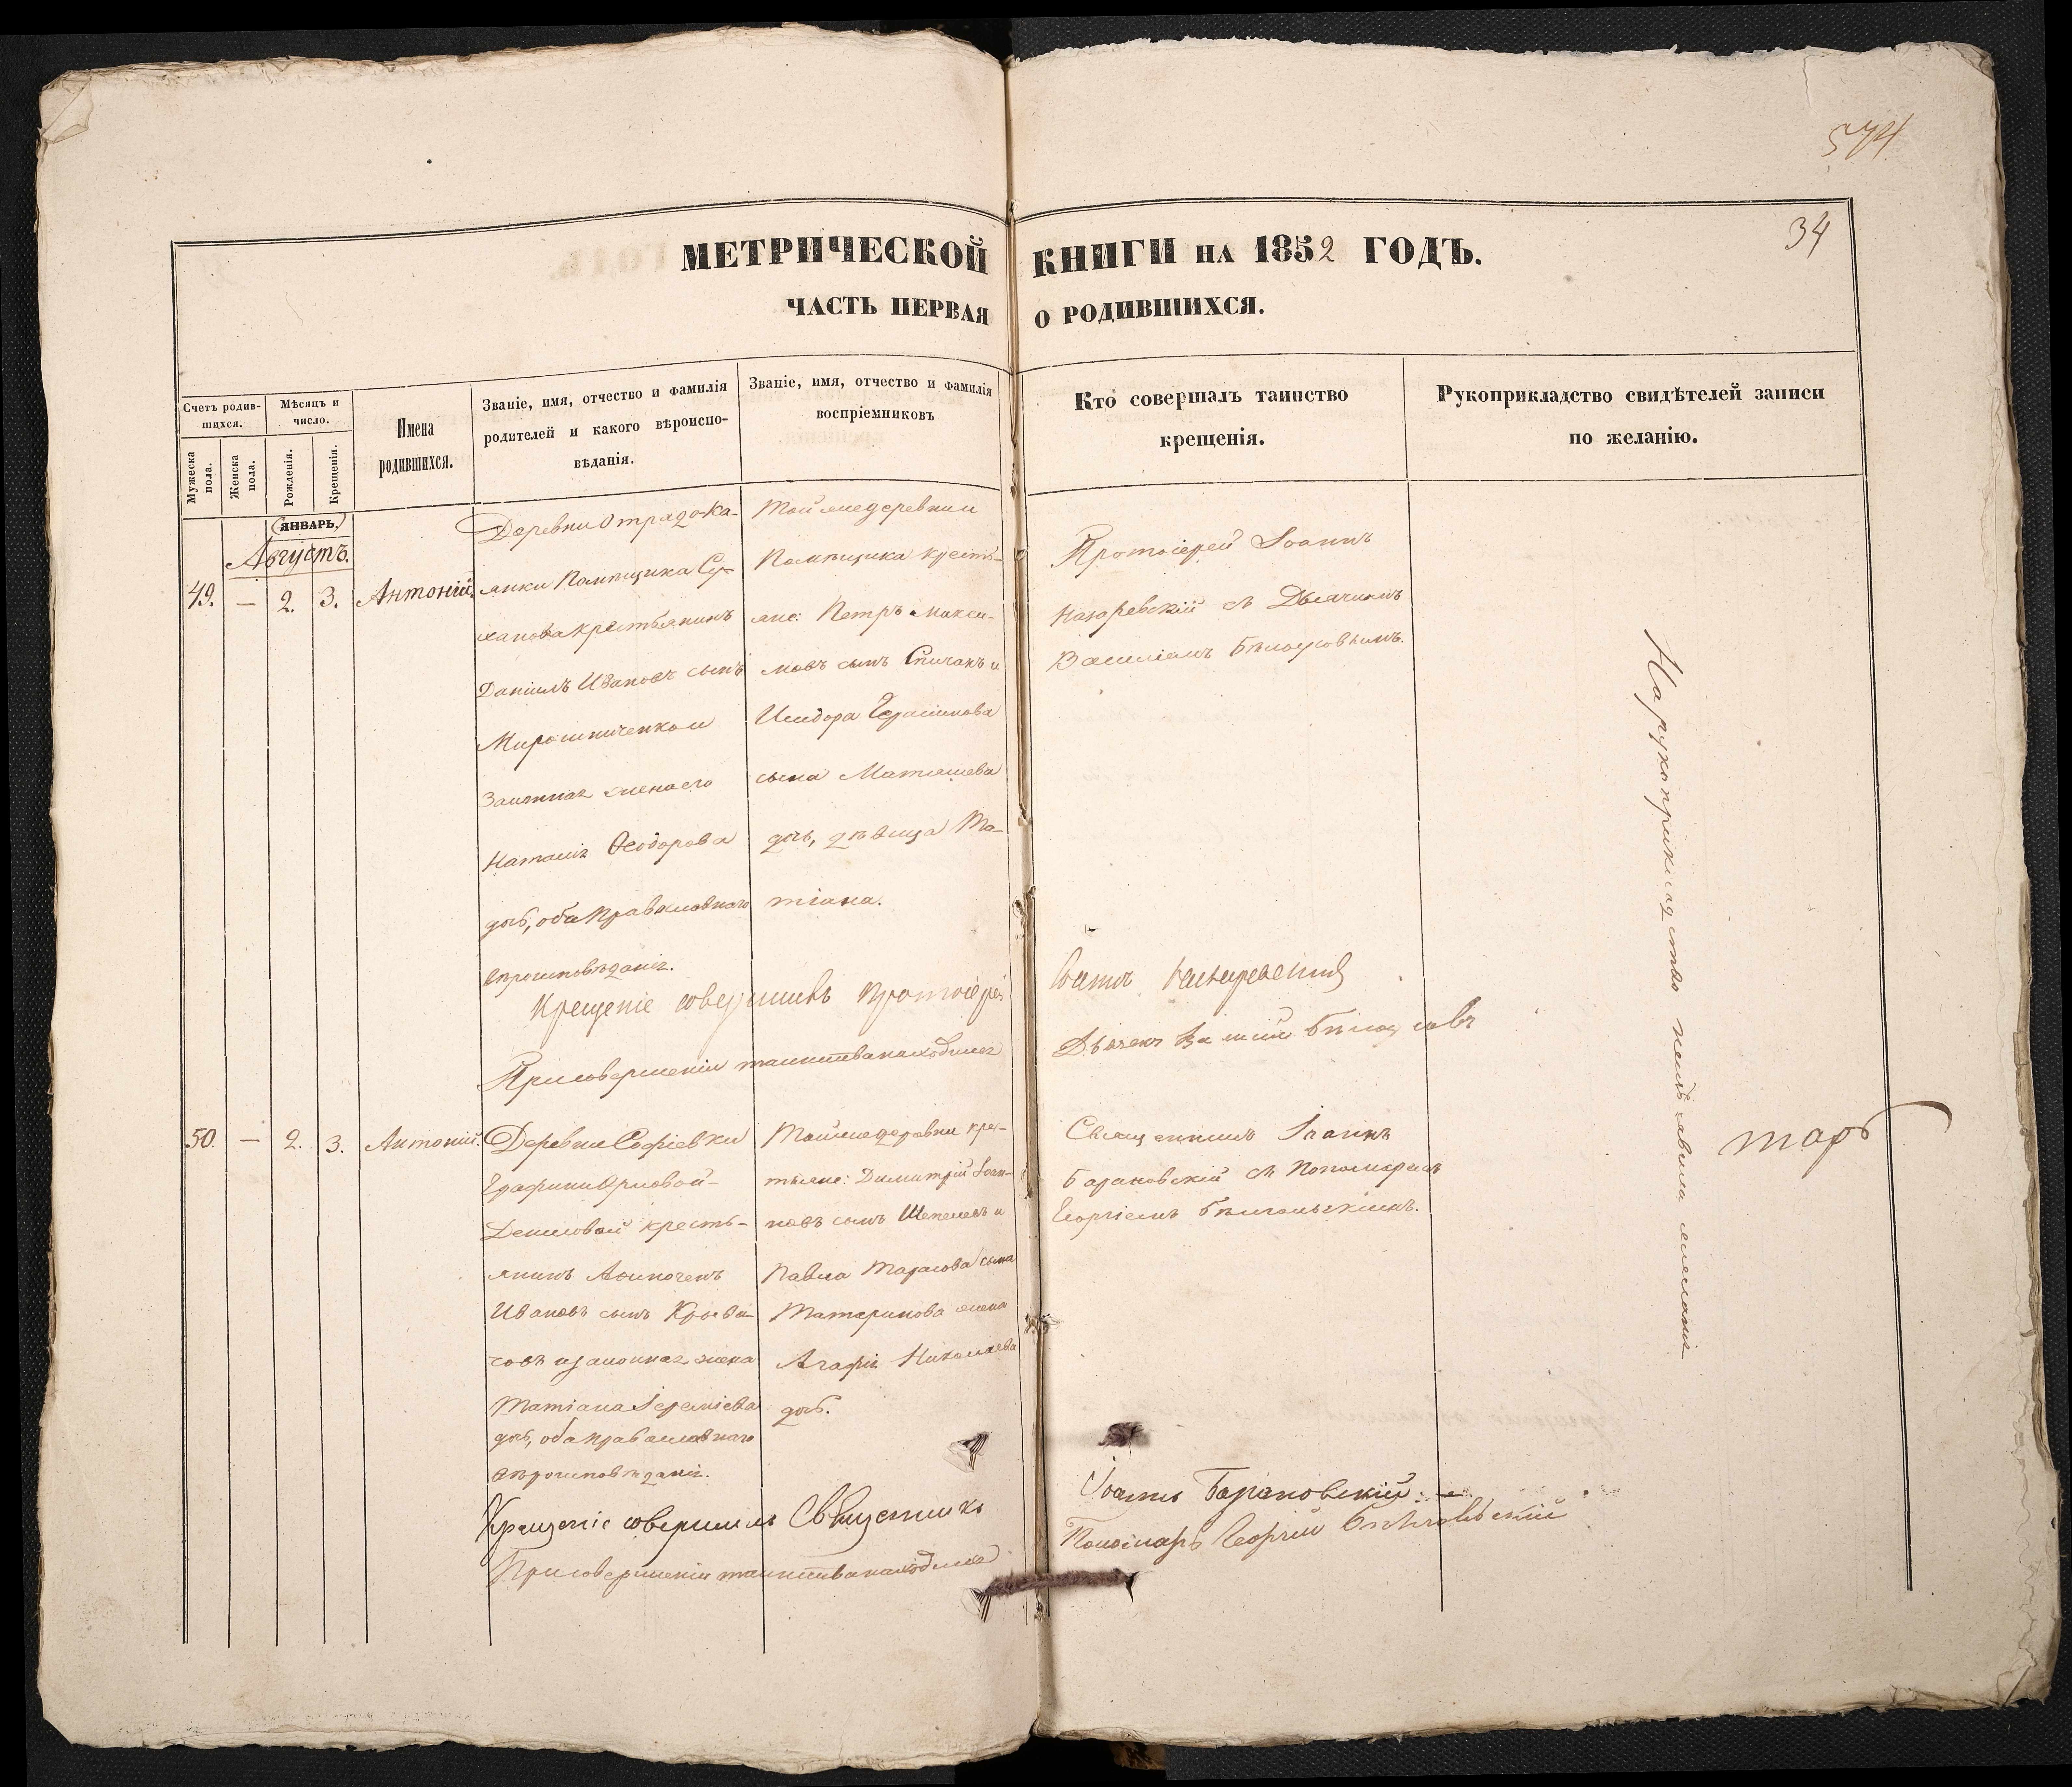 574
34
МЕТРИЧЕСКОЙ КНИГИ НА 1852 ГОДЪ.
ЧАСТЬ ПЕРВАЯ О РОДИВШИХСЯ.
Счетъ родив-
шихся.
Мужеска пола.
Женска пола.
Мѣсяцъ и
число.
Рожденія.
Крещенія.
Имена
родившихся.
Званіе, имя, отчество и фамилія
родителей и какого вѣроиспо-
вѣданія.
Званіе, имя, отчество и фамилія
воспріемниковъ
Кто совершалъ таинство
крещенія.
Рукоприкладство свидѣтелей записи
по желанію.
ЯНВАРЬ.
Августъ.
49. — 2. 3. Антоній.
Деревни Отрадо-Ка-
янки Помѣщика Су-
ханова крестьянинъ
Даніилъ Ивановъ сынъ
Мирошниченко и
Законная жена его
Наталія Ѳеодорова
дочь, оба православнаго
вѣроисповѣданія.
Той же деревни
Помѣщика кресть-
яне: Петръ Макси-
мовъ сынъ Спичакъ и
Исидора Герасимова
сына Матяшева
дочь, дѣвица Та-
тіана.
Протоіерей Іоаннъ
Назаревскій съ Дьячкомъ
Василіемъ Бѣлоусовымъ.
Крещеніе совершилъ Протоіерей Іоаннъ Назаревскій
При совершеніи таинства находился Дьячекъ Василій Бѣлоусовъ
50. — 2. 3. Антоній.
Деревни Софіевки
Графини Орловой-
Денисовой кресть-
янинъ
Ивановъ сынъ
и законная жена
Татіана Іереміева
дочь, оба православнаго
вѣроисповѣданія.
Той же деревни крес-
тьяне: Димитрій Іоан-
новъ сынъ Шепелевъ и
Павла Тарасова сына
Татаринова жена
Агафія Николаева
дочь.
Священникъ Іоаннъ
Барановскій съ Пономаремъ
Георгіемъ
Крещеніе совершилъ Священникъ Іоаннъ Барановскій.
При совершеніи таинства находился Пономарь Георгій
На рукоприкладство неизъявила желанія
тарь